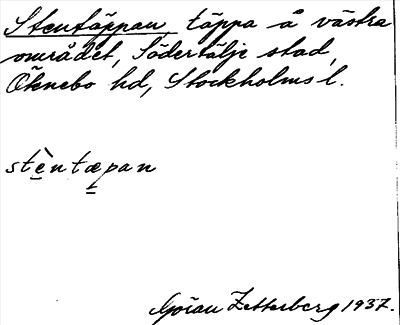 Stentäppan, täppa å västra
området, Södertälje stad,
Öknebo hd, Stockholms l.
stè̠ntæ̠pan
Göran Zetterberg 1937.